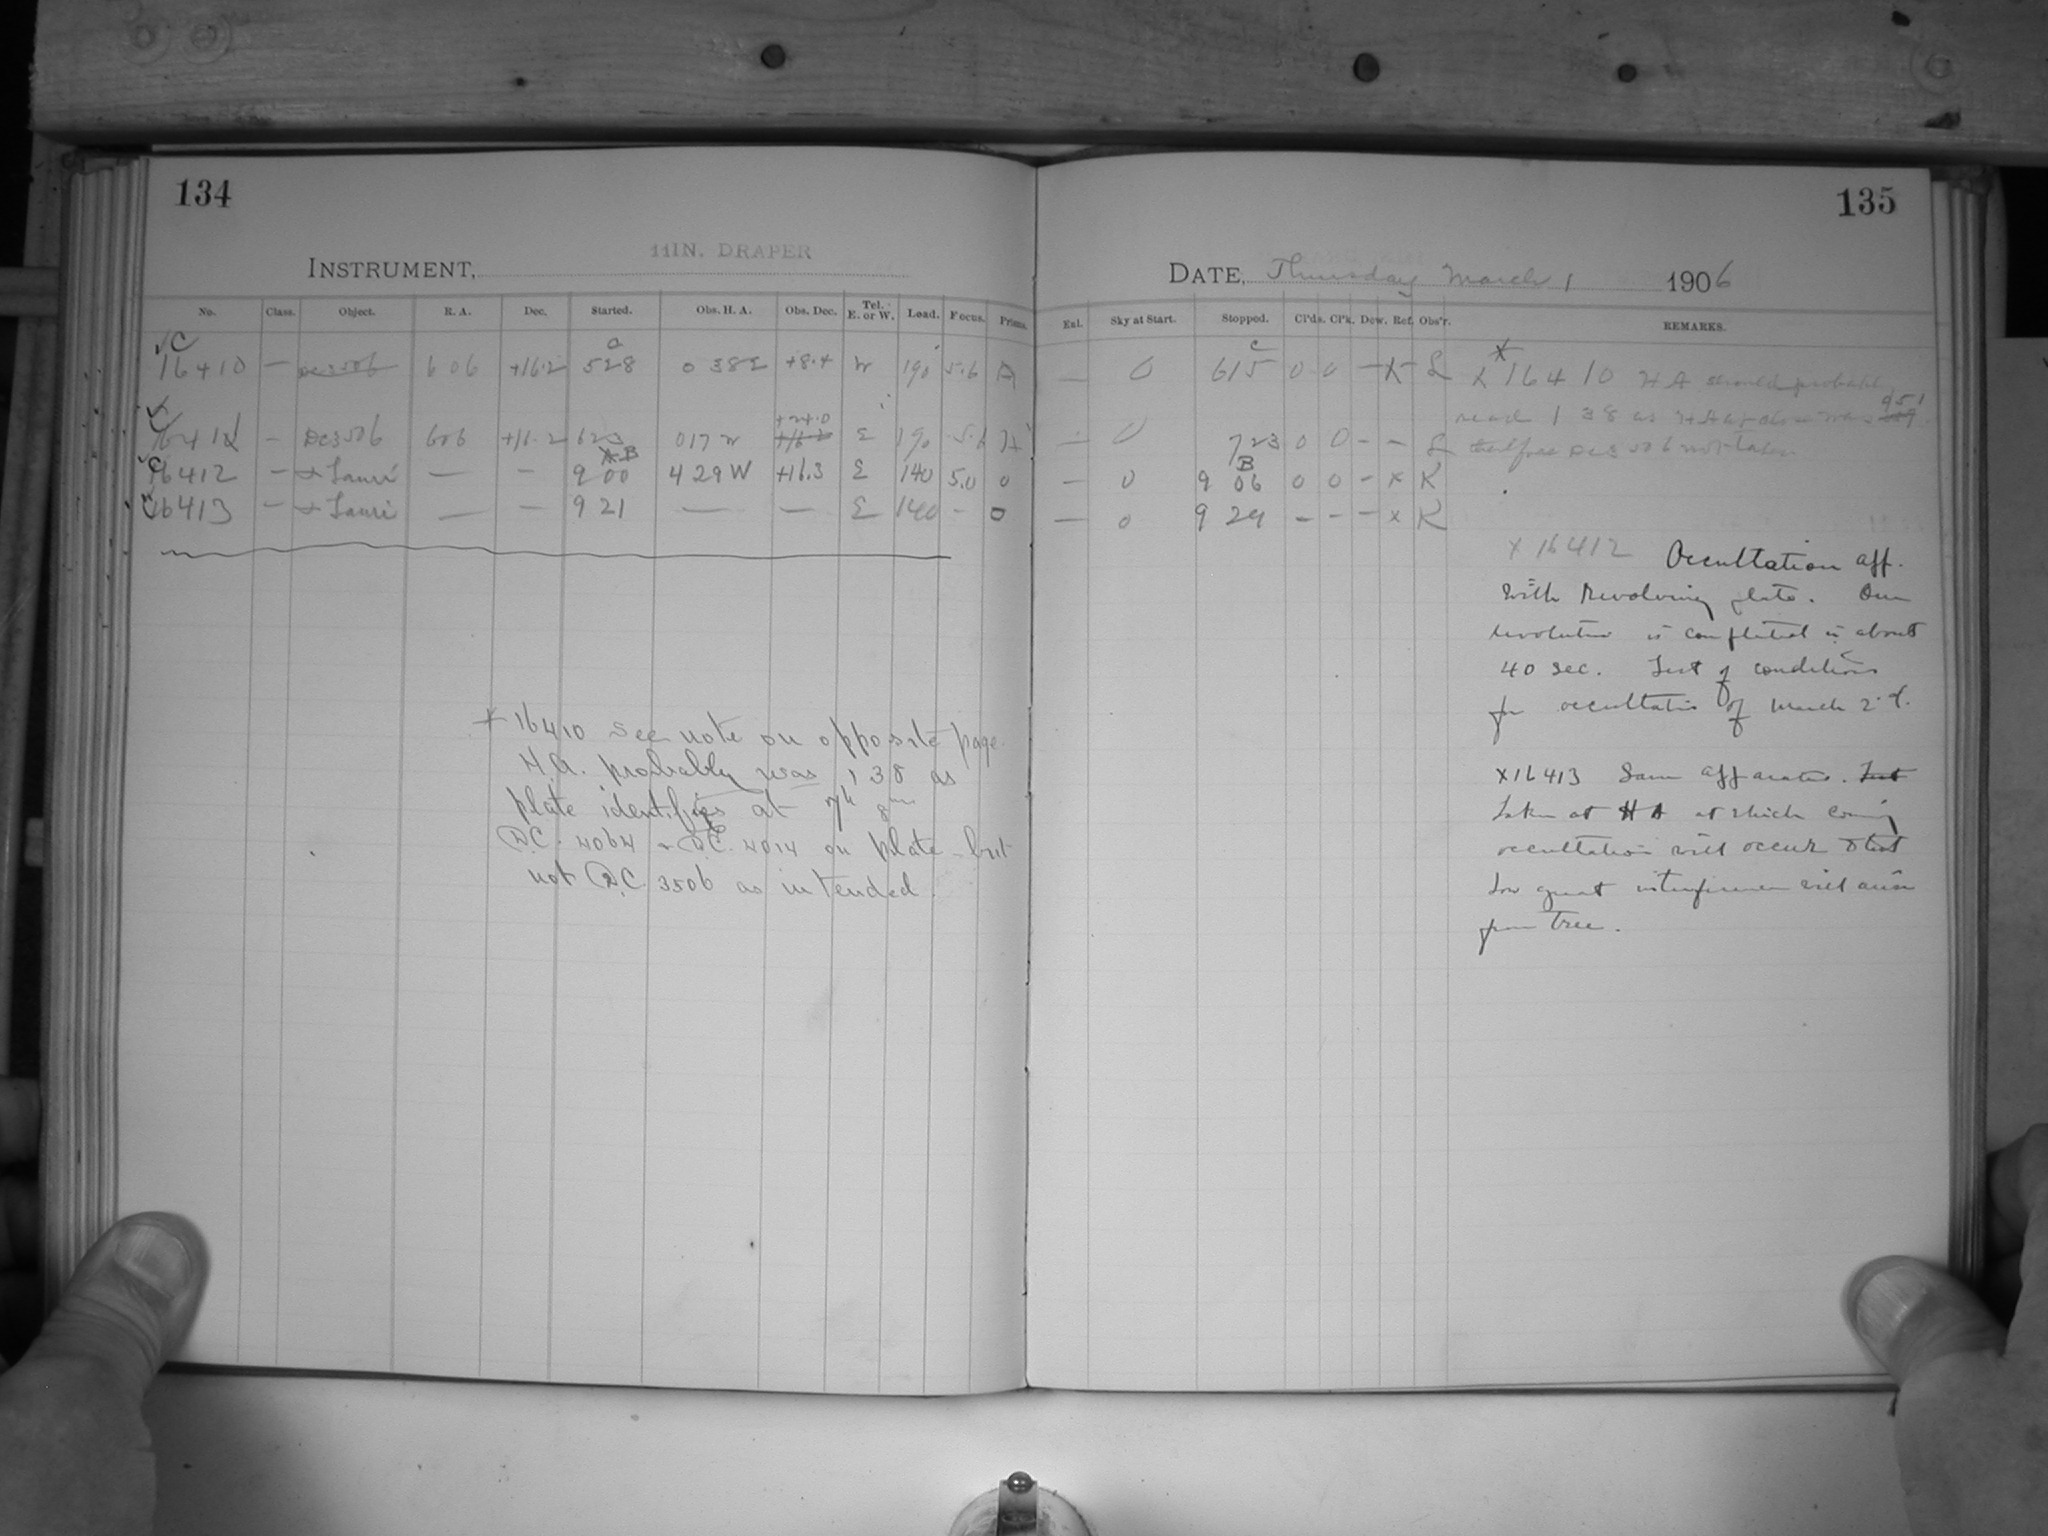 134
INSTRUMENT, 11IN. DRAPER
No. Class. Object. R. A. Dec. Started. Obs. H. A. Obs. Dec. Tel. E. or W. Load. Focus. Prisms.
C
16410 — DC3506 6 06 +16.2 528 0 38E +8.4 W 190 5.6 A
+24.0
DC3506 606 +16.2 623 017 W +16.2 E 190 5.6
16412 — 9 00 4 29 W +16.3 E 140 5.0 0
16413 — 9 21 — — E 140 – 0
+ 16410 see note on opposite page
H.A. probably was 1 38 as
plate identifies at 7h 8m
D.C. 4064 + D.C. 4014 on plate but
not D.C. 3506 as intended.
135
DATE, Thursday March 1 1906
Exl. Sky at Start. Stopped. Cl'ds. Cl'k. Dew. Ref. Obs'r. REMARKS.
— 0 615 0 0 — X x 16410 HA should probably
read 1 38 as HA at close was 951
— 0 723 0 0 – – DC3506 not taken
B
— 0 9 06 0 0 – x K
— 0 9 29 – – – x K
x 16412 Occultation app.
with Revolving plate. One
revolution is completed in about
40 sec. Test of conditions
for occultation of March 2d.
x16413 Same apparatus. Test
Taken at HA at which coming
occultation will occur to test
how great interference will arise
from tree.